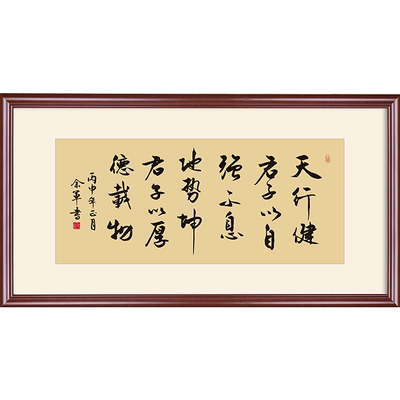 天行健
君子以自
强不息
地势坤
君子以厚
德载物
丙申年正月
余军书